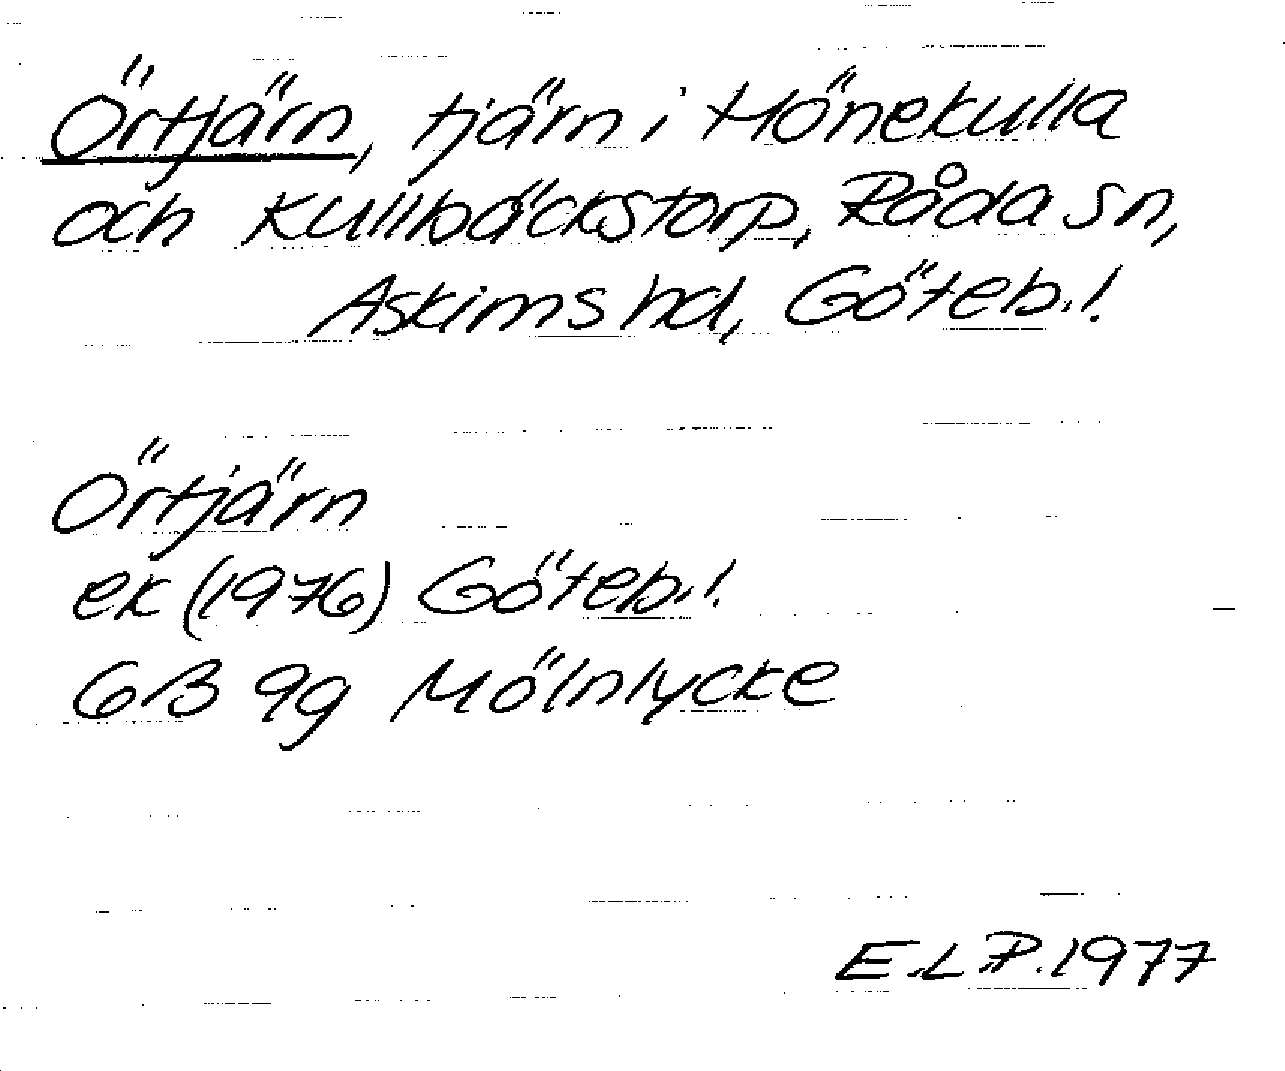 Örtjärn, tjärn i Hönekulla
och Kullbäckstorp, Råda sn,
Askims hd, Göteb.l.
Örtjärn
ek (1976) Göteb.l.
6B 9g Mölnlycke
E.L.P. 1977